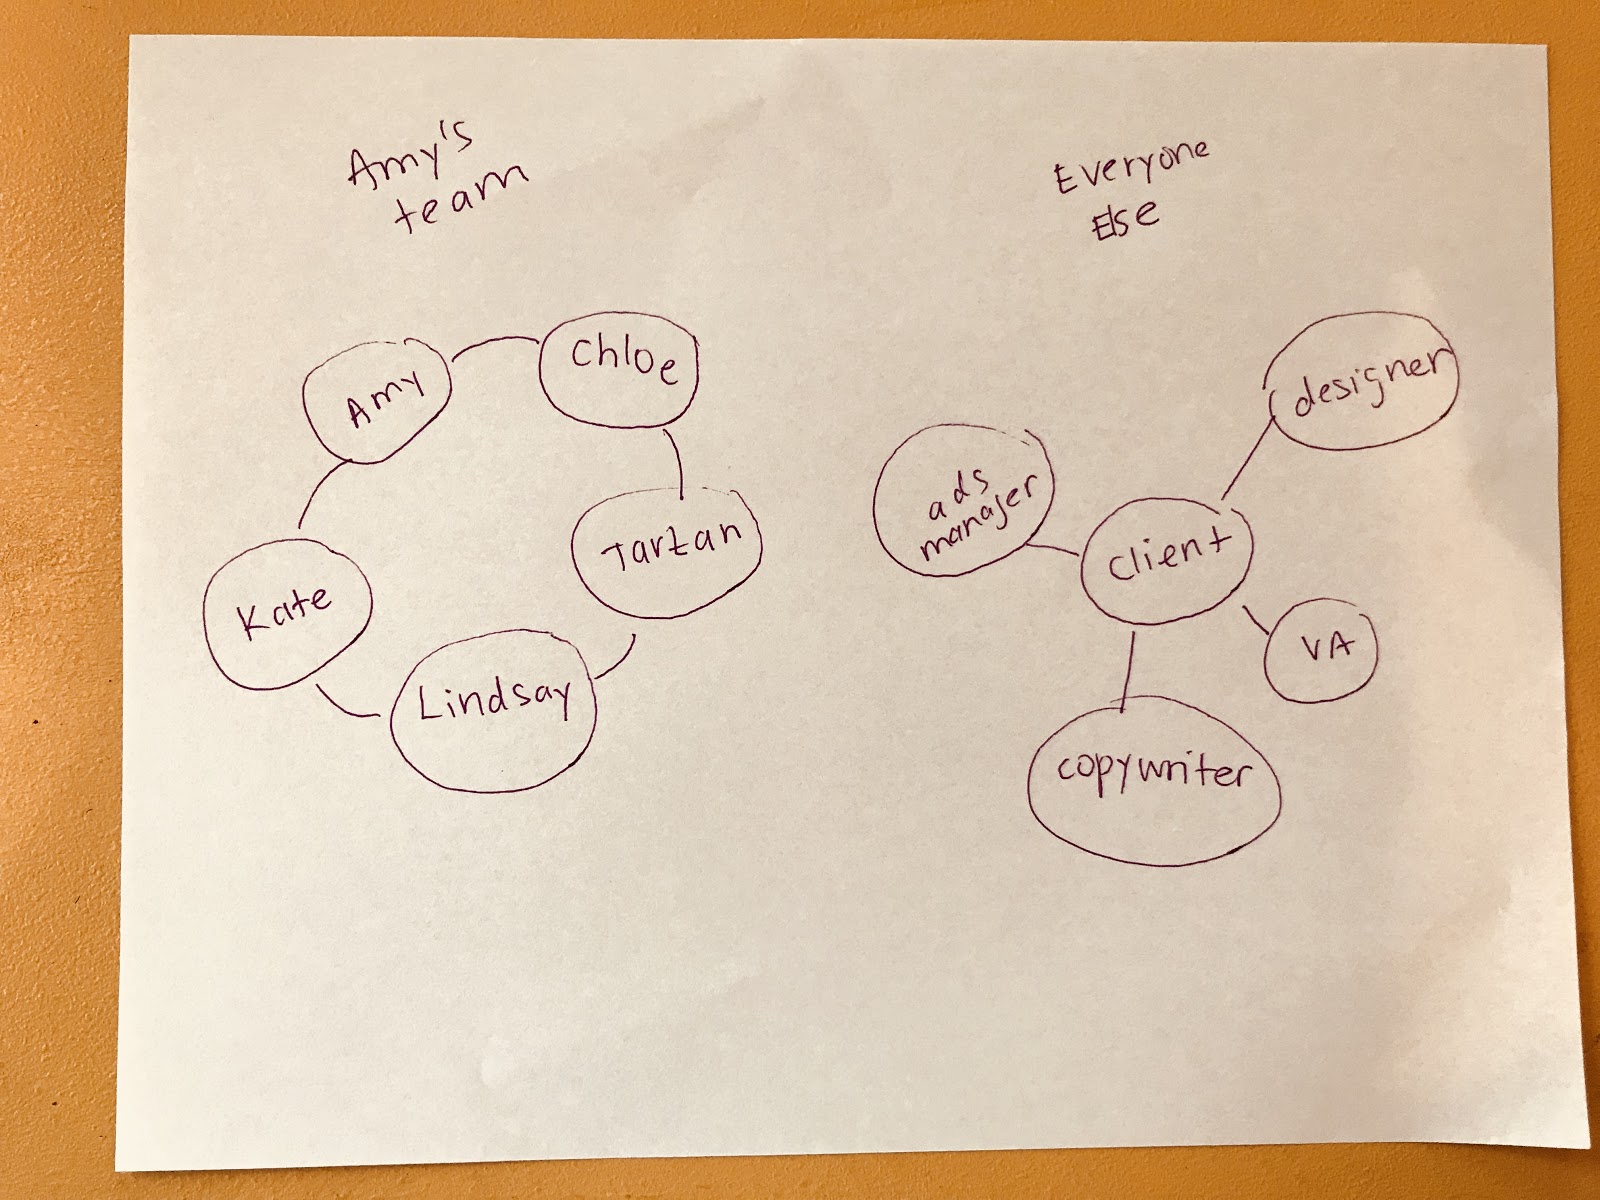 Amy's
team
Amy
Chloe
Tarzan
Lindsay
Kate
Everyone
Else
designer
ads
manager
client
VA
copywriter